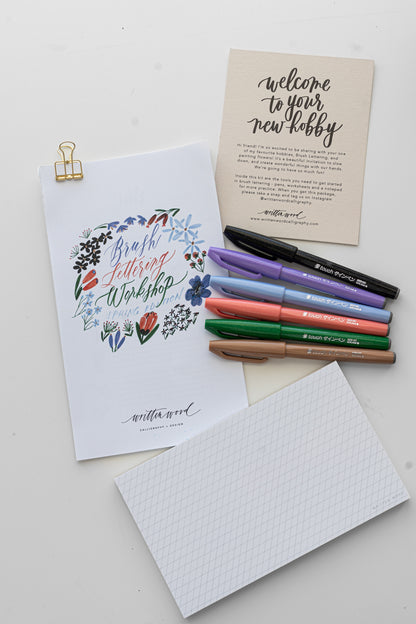 welcome
to your
new hobby
Hi friend! I'm so excited to be sharing with you one
of my favourite hobbies, Brush Lettering, and
painting flowers! It's a beautiful invitation to slow
down, and create wonderful things with our hands.
We're going to have so much fun!
Inside this kit are the tools you need to get started
in brush lettering - pens, worksheets and a notepad
for more practice. When you get this package,
please take a snap and tag us on Instagram
@writtenwordcalligraphy
written word
www.writtenwordcalligraphy.com
Brush
Lettering
Workshop
SPRING EDITION
written word
CALLIGRAPHY + DESIGN
touch サインペン
touch サインペン
touch サインペン
touch サインペン
touch サインペン
touch サインペン